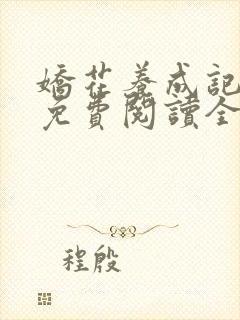 嬌花養成記
免費閱讀全
程殷